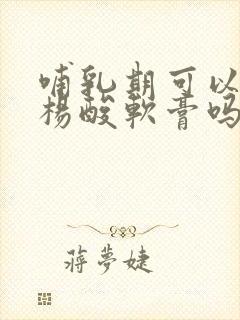 哺乳期可以
楊酸軟膏吗
蔣夢婕